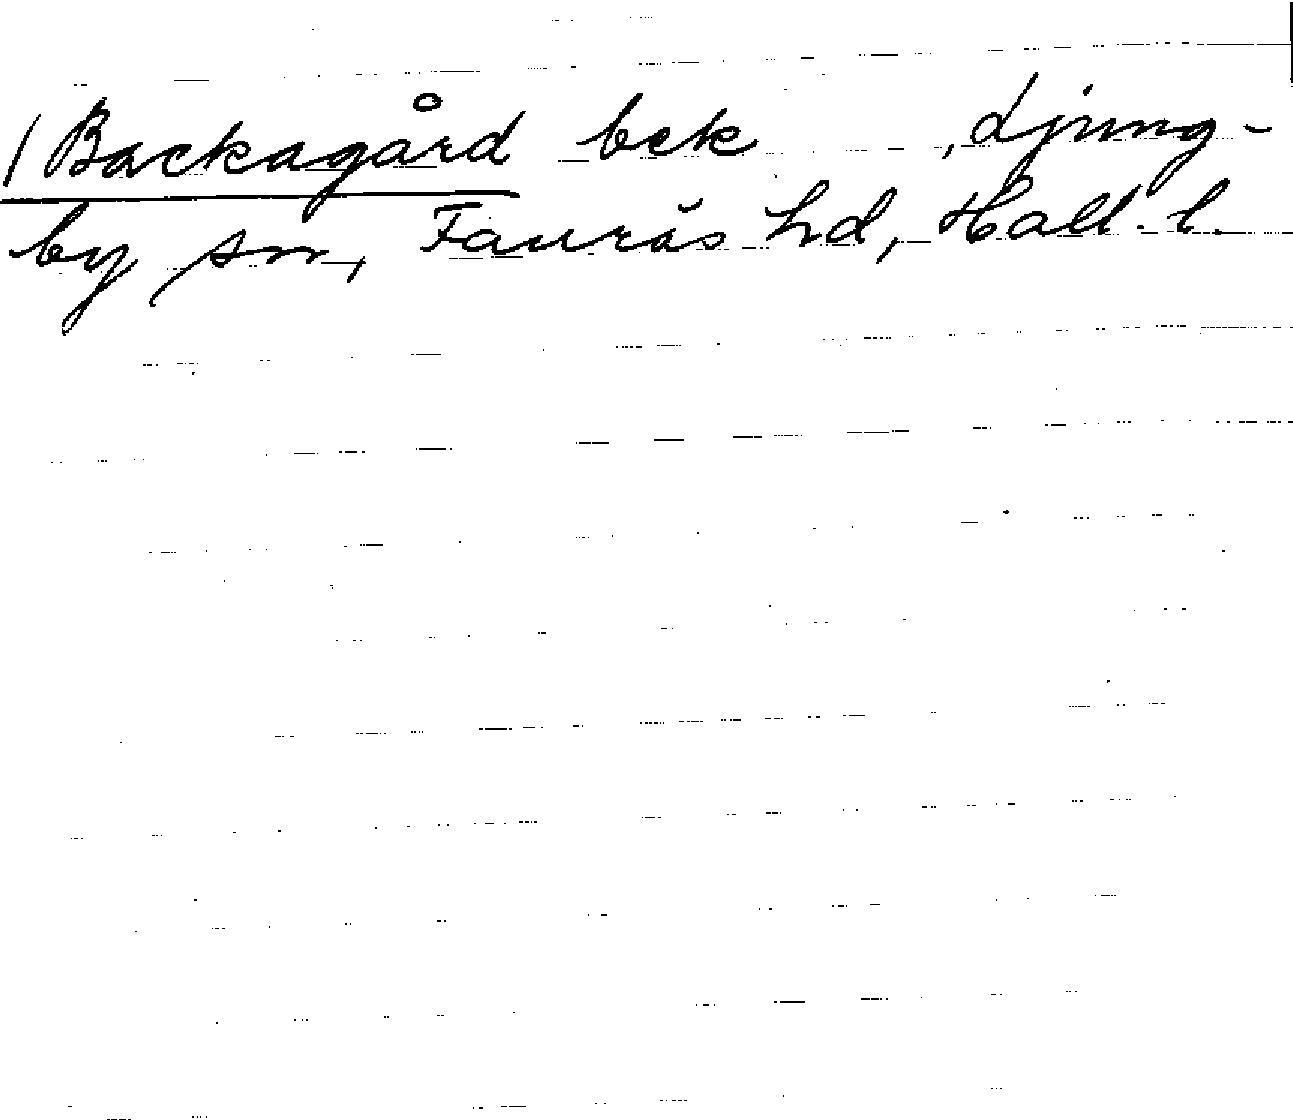 /Backagård bek , Ljung-
by sn, Faurås hd, Hall. l.